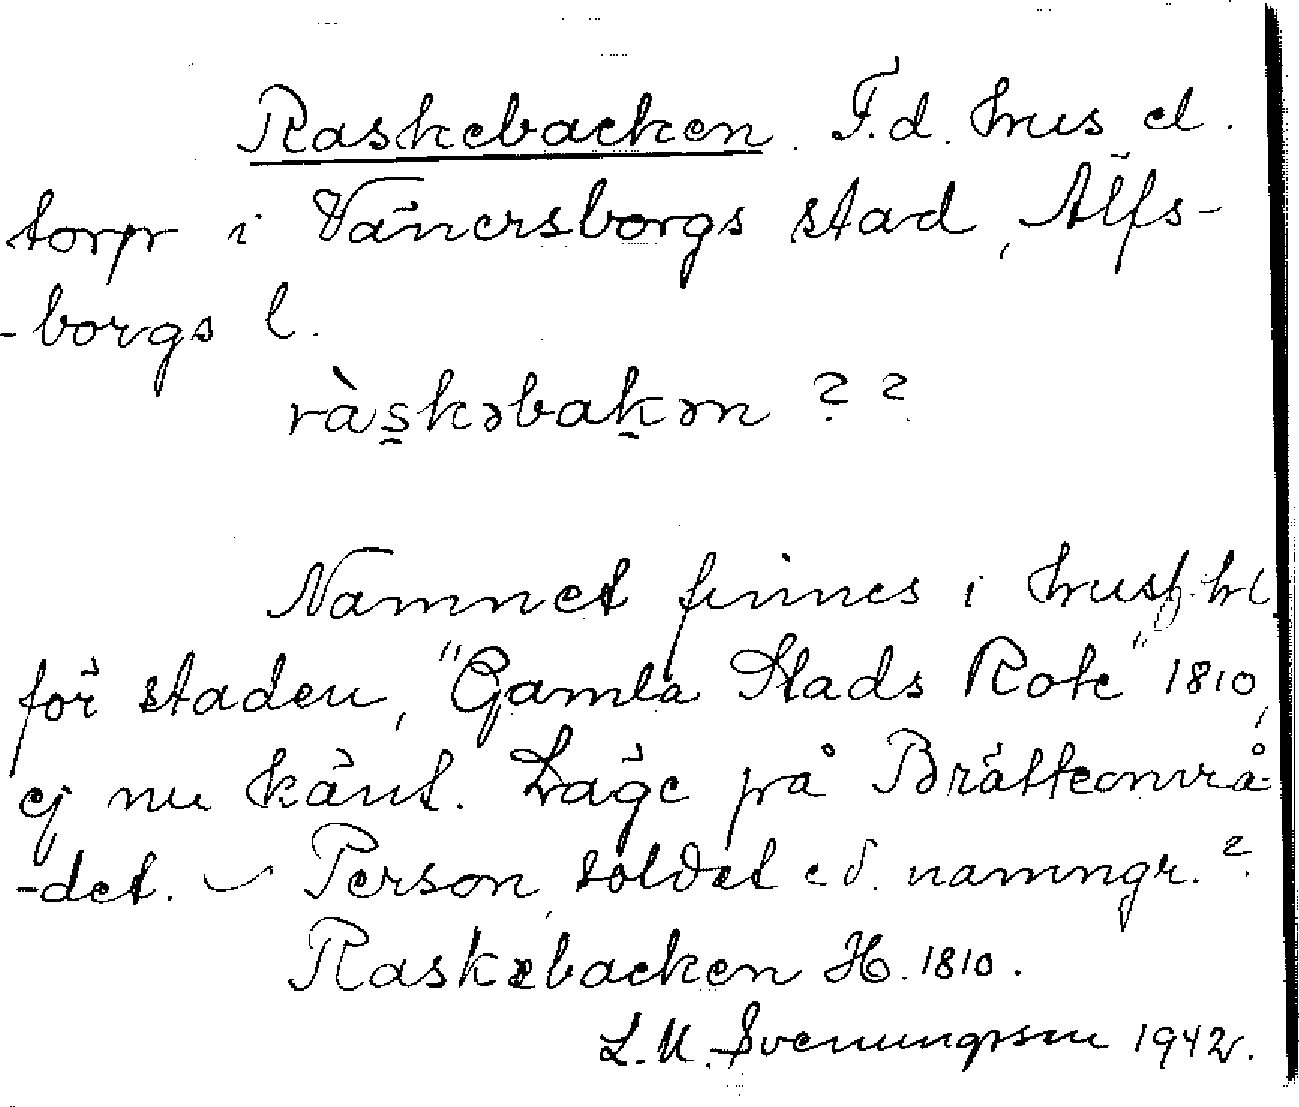 Raskebacken. F.d. hus el.
torp i Vänersborgs stad, Älfs-
-borgs l.
ràs̱kəbaḵən ??
Namnet finnes i husf.hl
för staden, "Gamla Stads Rote" 1810,
ej nu känt. Läge på Brätteområ-
-det. – Person, soldat e.d. namngr.?
Raskebacken H. 1810.
L.M. Svenungsson 1942.